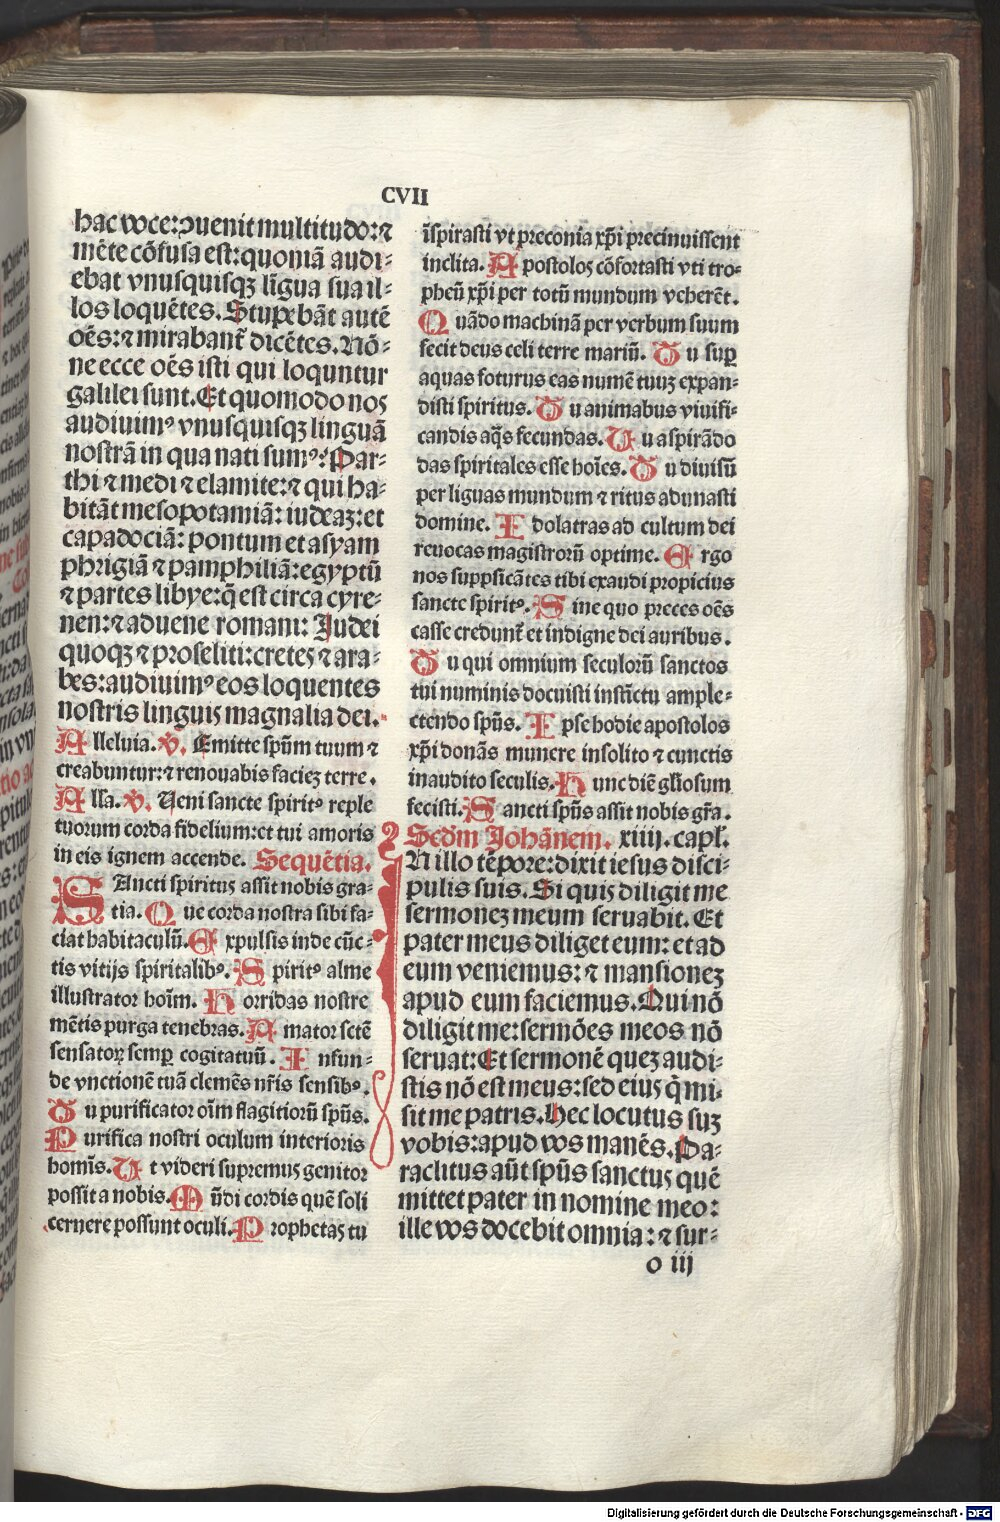 CVII
hac voce: ɔuenit multitudo: ⁊
mēte cōfusa est: quoniā audi⸗
ebat vnusquisqꝫ līgua sua il⸗
los loquētes. Stupebāt autē
oēs: ⁊ mirabant᷑ dicētes. Nō⸗
ne ecce oēs isti qui loquntur
galilei sunt. Et quomodo nos
audiuimꝰ vnusquisqꝫ linguā
nostrā in qua nati sumꝰ? Par⸗
thi ⁊ medi ⁊ elamite: ⁊ qui ha⸗
bitāt mesopotamiā: iudeaꝫ: et
capadociā: pontum et asyam
phrigiā ⁊ pamphiliā: egyptū
⁊ partes libye: q̄ est circa cyre⸗
nen: ⁊ aduene romani: Judei
quoqꝫ ⁊ proseliti: cretes ⁊ ara⸗
bes: audiuimꝰ eos loquentes
nostris linguis magnalia dei.
Alleluia. ℣. Emitte spūm tuum ⁊
creabuntur: ⁊ renouabis facieꝫ terre.
All'a. ℣. Ueni sancte spiritꝰ reple
tuorum corda fidelium: et tui amoris
in eis ignem accende. Sequētia.
SAncti spiritus assit nobis gra⸗
tia. Que corda nostra sibi fa⸗
ciat habitaculū. Expulsis inde cūc⸗
tis vitijs spiritalibꝰ. Spiritꝰ alme
illustrator hoīm. Horridas nostre
mētis purga tenebras. Amator sctē
sensatoꝝ semꝑ cogitatuū. Infun⸗
de vnctionē tuā clemēs nr̄is sensibꝰ.
Tu purificator oīm flagitiorū spūs.
Purifica nostri oculum interioris
homīs. Ut videri supremus genitor
possit a nobis. Mūdi cordis quē soli
cernere possunt oculi. Prophetas tu
īspirasti vt preconia xp̄i precinuissent
inclita. Apostolos cōfortasti vti tro⸗
pheū xp̄i per totū mundum veherēt.
Quādo machinā per verbum suum
fecit deus celi terre mariū. Tu suꝑ
aquas foturus eas numē tuuꝫ expan⸗
disti spiritus. Tu animabus viuifi⸗
candis aq̄s fecundas. Tu aspirādo
das spiritales esse hoīes. Tu diuisū
per liguas mundum ⁊ ritus adunasti
domine. Idolatras ad cultum dei
reuocas magistrorū optime. Ergo
nos supplicātes tibi exaudi propicius
sancte spiritꝰ. Sine quo preces oēs
casse credunt᷑ et indigne dei auribus.
Tu qui omnium seculorū sanctos
tui numinis docuisti instīctu ample⸗
ctendo spūs. Ipse hodie apostolos
xp̄i donās munere insolito ⁊ cunctis
inaudito seculis. Hunc diē gl'iosum
fecisti. Sancti spūs assit nobis gr̄a.
Scdm̄ Johānem. xiiij. capl'.
IN illo tēpore: dixit iesus disci⸗
pulis suis. Si quis diligit me
sermoneꝫ meum seruabit. Et
pater meus diliget eum: et ad
eum veniemus: ⁊ mansioneꝫ
apud eum faciemus. Qui nō
diligit me: sermōes meos nō
seruat: Et sermonē queꝫ audi⸗
stis nō est meus: sed eius q̄ mi⸗
sit me patris. Hec locutus suꝫ
vobis: apud vos manēs. Pa⸗
raclitus aūt spūs sanctus quē
mittet pater in nomine meo:
ille vos docebit omnia: ⁊ sur⸗
o iij
Digitalisierung gefördert durch die Deutsche Forschungsgemeinschaft - DFG